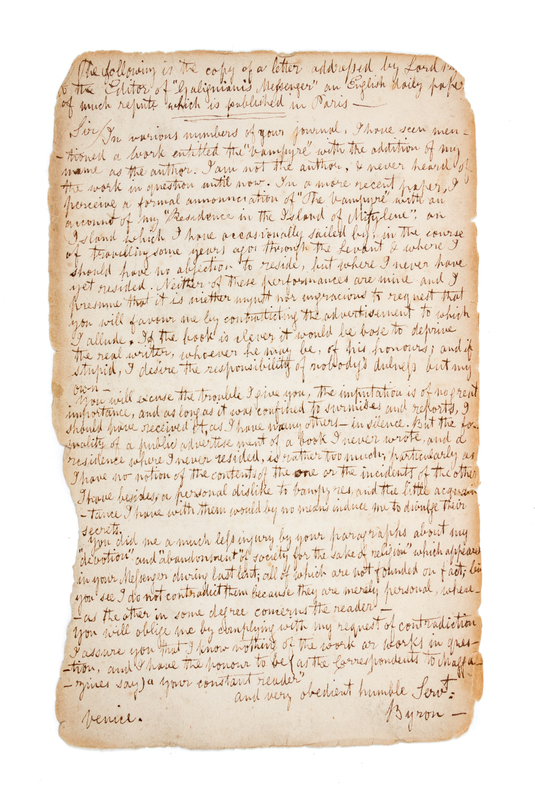 The following is the copy of a letter addressed by Lord
the Editor of "Galignani's Messenger" an English daily pape
of much repute which is published in Paris —
Sir/ In various numbers of your journal, I have seen men-
-tioned a work entitled the "Vampyre" with the addition of my
name as the author. I am not the author, & never heard of
the work in question until now. In a more recent paper, I
perceive a formal annunciation of "The Vampyre" with an
account of my "Residence in the Island of Mitylene": an
Island which I have occasionally sailed by, in the course
of travelling some years ago through the Levant & where I
should have no objection to reside, but where I never have
yet resided. Neither of these performances are mine and I
presume that it is neither unjust nor ungracious to request that
you will favour me by contradicting the advertisement to which
I allude. If the book is clever it would be base to deprive
the real writer, whoever he may be, of his honours; and if
stupid, I desire the responsibility of nobody's dulness but my
own —
You will excuse the trouble I give you, the imputation is of no great
importance, and as long as it was confined to surmises and reports, I
should have received it, as I have many others — in silence. But the for-
mality of a public advertisement of a book I never wrote, and a
residence where I never resided, is rather too much, particularly as
I have no notion of the contents of the one or the incidents of the other
I have besides, a personal dislike to Vampyres, and the little acquain
-tance I have with them would by no means induce me to divulge their
secrets.
You did me a much less injury by your paragraphs about my
"devotion" and "abandonment of society for the sake of religion" which appeared
in your Messenger during last lent; all of which are not founded on fact; but
you see I do not contradict them because they are merely personal, where-
-as the other in some degree concerns the reader —
You will oblige me by complying with my request of contradiction
I assure you that I know nothing of the work or works in ques-
-tion; and have the honour to be (as the Correspondents to Magga
-zines say) "your constant reader"
and very obedient humble Servt:
Venice. Byron —